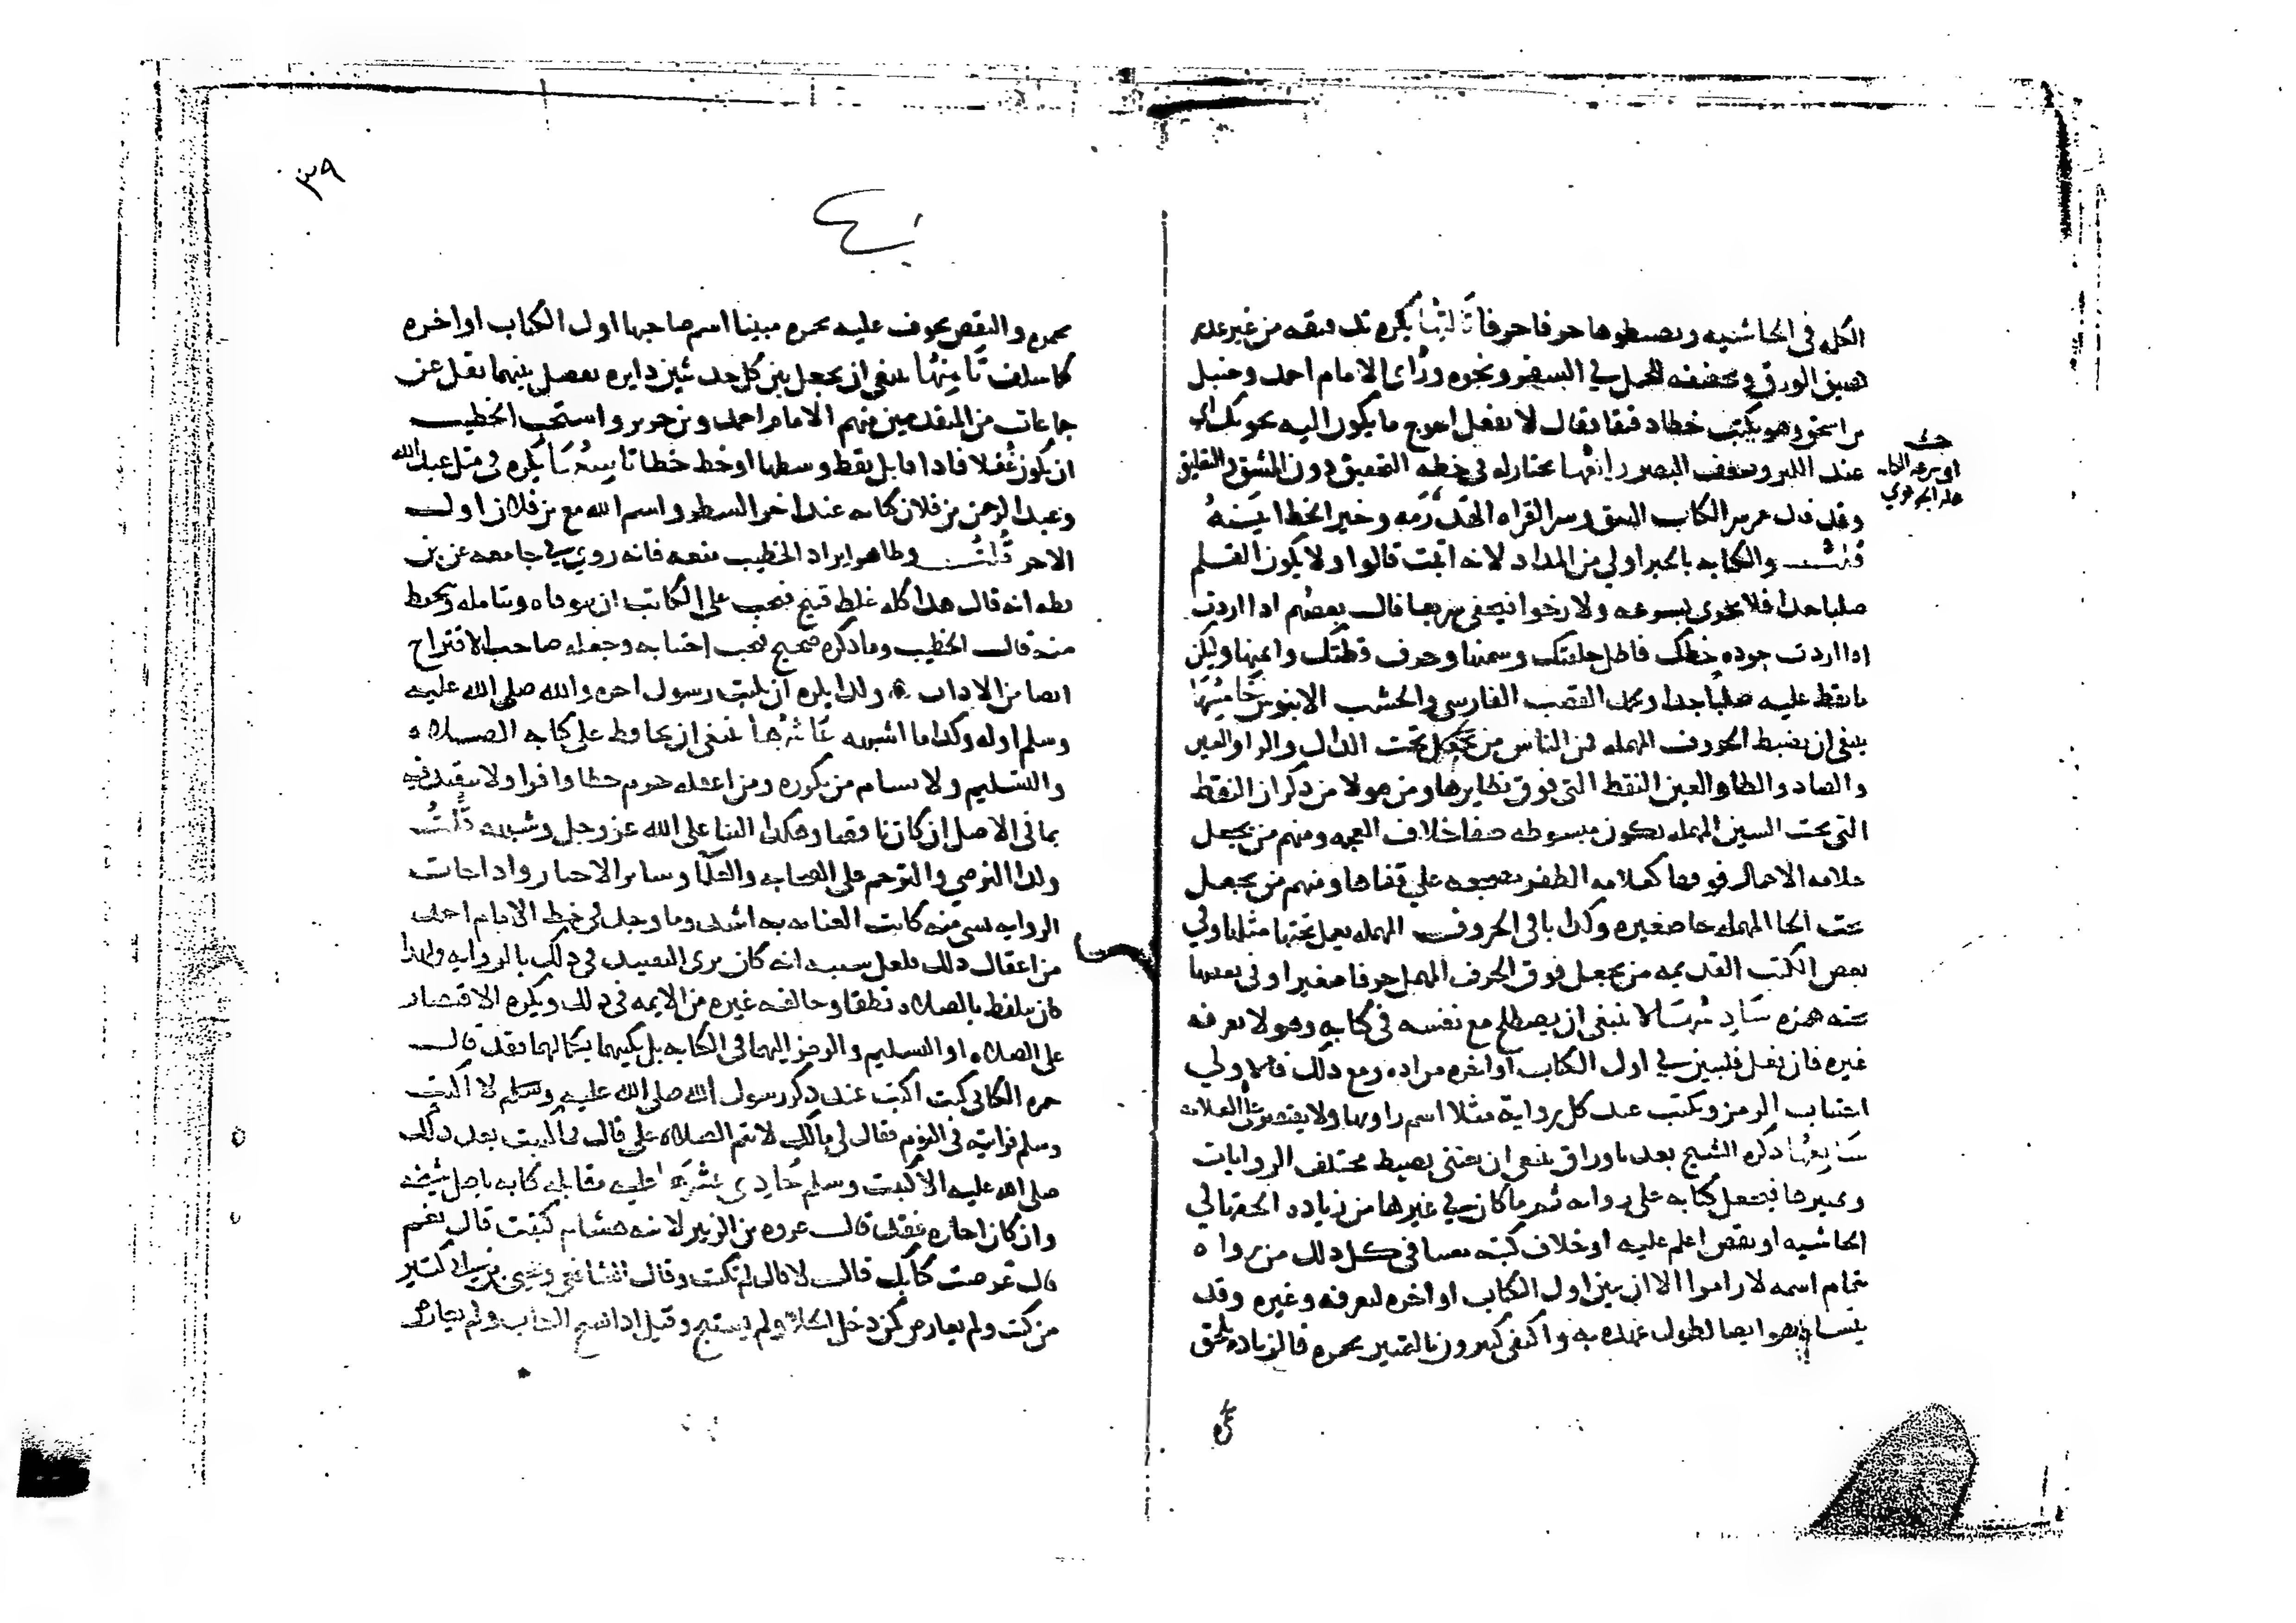 الكلمه في الحاشيه ويضبطوها حرفا حرفا ثالثها يكره تدقيقه من غير عذر
كضيق الورق وتخفيفه للحمل في السفر ونحوه وراى الامام احمد وحنبل
بن اسحق وهو يكتب خطا دقيقا فقال لا تفعل احوج ما يكون اليه يخونك اى
عند الكبر وضعف البصر رابعها يختار له في خطه التحقيق دون المشق والتعليق
وقد قال عمر شر الكتاب المشق وشر القراه الهذرمه وخير الخط ابينه
قلت والكتابه بالحبر اولي من المداد لانه اثبت قالوا ولا يكون القلم
صلبا جدا فلا يجري بسرعه ولا رخوا فيحفى سريعا قال بعضهم اذا اردت
اذا اردت جوده خطك فاطل جلفتك وسمنها وحرف قطتك وايمنها وليكن
ما يقط عليه صلبا جدا ويحمد القصب الفارسي والخشب الابنوس خامسها
ينبغي ان يضبط الحروف المهمله فمن الناس من يجعل تحت الدال والرا والسين
والصاد والطا والعين النقط التي فوق نظايرها ومن هولا من ذكر ان النقط
التي تحت السين المهمله تكون مبسوطه صفا خلاف المعجمه ومنهم من يجعل
علامه الاهمال فوقها كقلامه الظفر مضجعه علي قفاها ومنهم من يجعل
تحت الحا المهمله حا صغيره وكذا باقي الحروف المهمله يجعل تحتها مثلها وفي
بعض الكتب القديمه من يجعل فوق الحرف المهمل حرفا صغيرا وفي بعضها
تحته همزه سادسها لا ينبغي ان يصطلح مع نفسه في كتابه وهو لا يعرفه
غيره فان فعل فليبين في اول الكتاب او اخره مراده ومع ذلك فالاولي
اجتناب الرمز ويكتب عند كل رواية مثلا اسم راويها ولا يقتصر على العلامه
سابعها ذكره الشيخ بعد باوراق ينبغي ان يعتنى بضبط مختلف الروايات
وتمييزها فيجعل كتابه على روايه ثم ما كان في غيرها من زياده الحقها في
الحاشيه او نقص اعلم عليه او خلاف كتبه معينا في كل ذلك من رواه
بتمام اسمه لا رامزا الا ان يبين اول الكتاب او اخره لمعرفه وغيره وقد
ينساه هو ايضا لطول عهده به واكتفى كثيرون بالتمييز بحمره فالزياده تلحق
حنبل
اى
محمره والنقص يحوف عليه بحمره مبينا اسم صاحبها اول الكتاب او اخره
كما سلف ثامنها ينبغي ان يجعل بين كل حديثين دايره تفصل بينهما نقل عن
جماعات من المتقدمين منهم الامام احمد وبن جرير واستحب الخطيب
ان يكون غفلا فاذا قابل نقط وسطها او خط خطا تاسعها يكره في مثل عبد الله
وعبد الرحمن بن فلان كتابه عبد اخر السطر واسم الله مع بن فلان اول
الاخر قلت وظاهر ايراد الخطيب منعه فانه روي في جامعه عن بن
بطه انه قال هذا كله غلط قبيح فيجب على الكاتب ان يتوقاه ويتامله ويتحفظ
منه قال الخطيب وما ذكره صحيح فيجب اجتنابه وجعله صاحب الاقتراح
ايضا من الاداب ه وكذا يكره ان يكتب رسول اخره والله صلى الله عليه
وسلم اوله وكذا ما اشبهه عاشرها ينبغي ان يحافظ على كتابه الصلاه
والتسليم ولا يسام من تكرره ومن اغفله حرم حظا وافرا ولا يتقيد فيه
بما في الاصل ان كان ناقصا وهكذا الثنا على الله عز وجل وشبهه قلت
وكذا الترضي والترحم على الصحابه والعلما وساير الاخيار واذا جات
الروايه بشي منه كانت العنايه به اشد وما وجد في خط الامام احمد
من اغفال ذلك فلعل سببه انه كان يرى التقييد في ذلك بالروايه ولهذا
كان يتلفظ بالصلاه نطقا وخالفه غيره من الايمه في ذلك ويكره الاقتصار
على الصلاه او التسليم والرمز اليهما في الكتابه بل يكتبهما بكمالهما فقد قال
حمزه الكناني كنت اكتب عند ذكر رسول الله صلى الله عليه وسلم لا اكتب
وسلم فرايته في النوم فقال لي مالك لا تتم الصلاه علي قال فما كتبت بعد ذلك
صلى الله عليه الا كتبت وسلم حادي عشرها عليه مقابله كتابه باصل شيخه
وان كان اجازه فقد قال عروه بن الزبير لابنه هشام كتبت قال نعم
قال عرضت كتابك قال لا قال لم تكتب وقال الشافعي ويحيى بن ابي كثير
من كتب ولم يعارض كمن دخل الخلا ولم يستنج وقيل اذا نسخ الكتاب ولم يعارض
٣٩